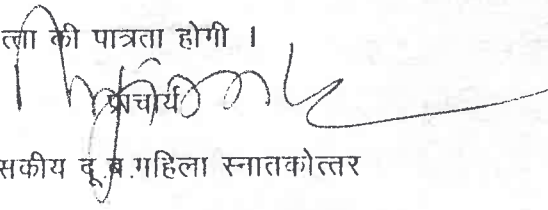 त्ता की पात्रता होगी ।
प्राचार्य
सकीय दू.ब.महिला स्नातकोत्तर